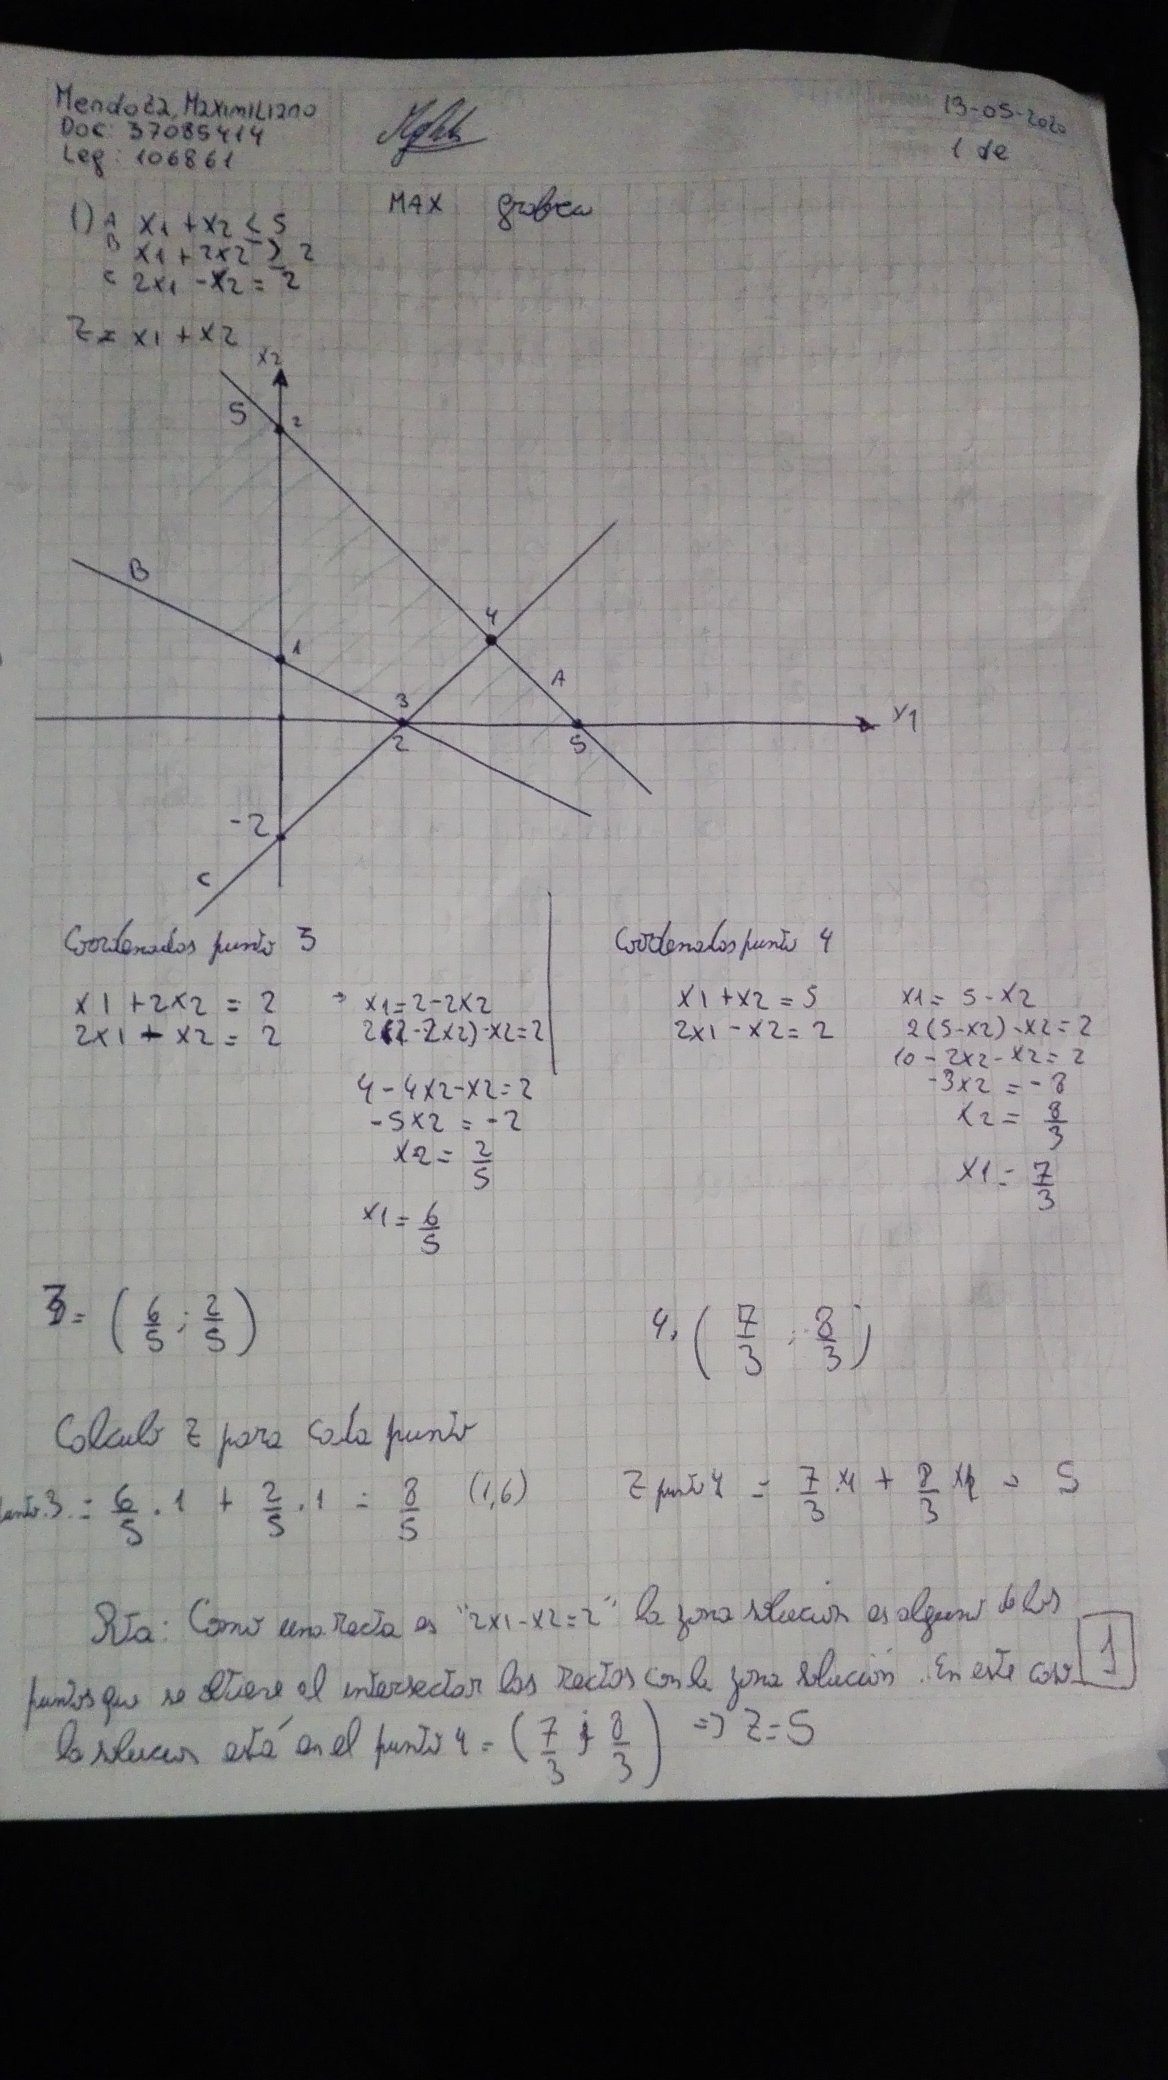 Mendoza, Maximiliano
Doc: 37085414
Leg: 106861
13-05-2020
1 de
MAX grafica
1) A x1 + x2 ≤ 5
B x1 + 2x2 ≥ 2
C 2x1 - x2 = 2
Z = x1 + x2
x2
5
2
B
1
4
A
3
2
5
x1
-2
C
Coordenadas punto 3
x1 + 2x2 = 2
2x1 - x2 = 2
→ x1 = 2 - 2x2
2(2 - 2x2) - x2 = 2
4 - 4x2 - x2 = 2
-5x2 = -2
x2 = 2/5
x1 = 6/5
Coordenadas punto 4
x1 + x2 = 5
2x1 - x2 = 2
x1 = 5 - x2
2(5 - x2) - x2 = 2
10 - 2x2 - x2 = 2
-3x2 = -8
x2 = 8/3
x1 = 7/3
3 = (6/5 ; 2/5)
4. (7/3 ; 8/3)
Calculo Z para cada punto
punto.3. = 6/5 . 1 + 2/5 . 1 = 8/5 (1,6)
Z punto 4 = 7/3 x1 + 8/3 x1 = 5
Rta: Como una recta es "2x1 - x2 = 2" la zona solución es alguno de los
puntos que se obtiene al intersectar las rectas con la zona solución. En este caso
la solucion está en el punto 4 = (7/3 ; 8/3) => Z = 5
1